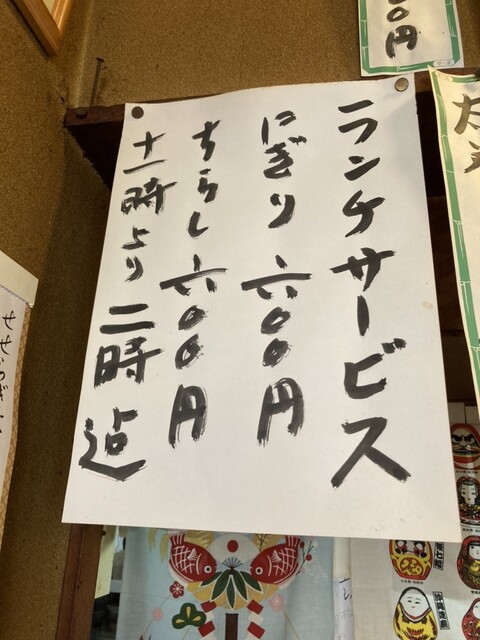 ランチサービス
にぎり 六〇〇円
ちらし 六〇〇円
十一時より二時迠
〇円